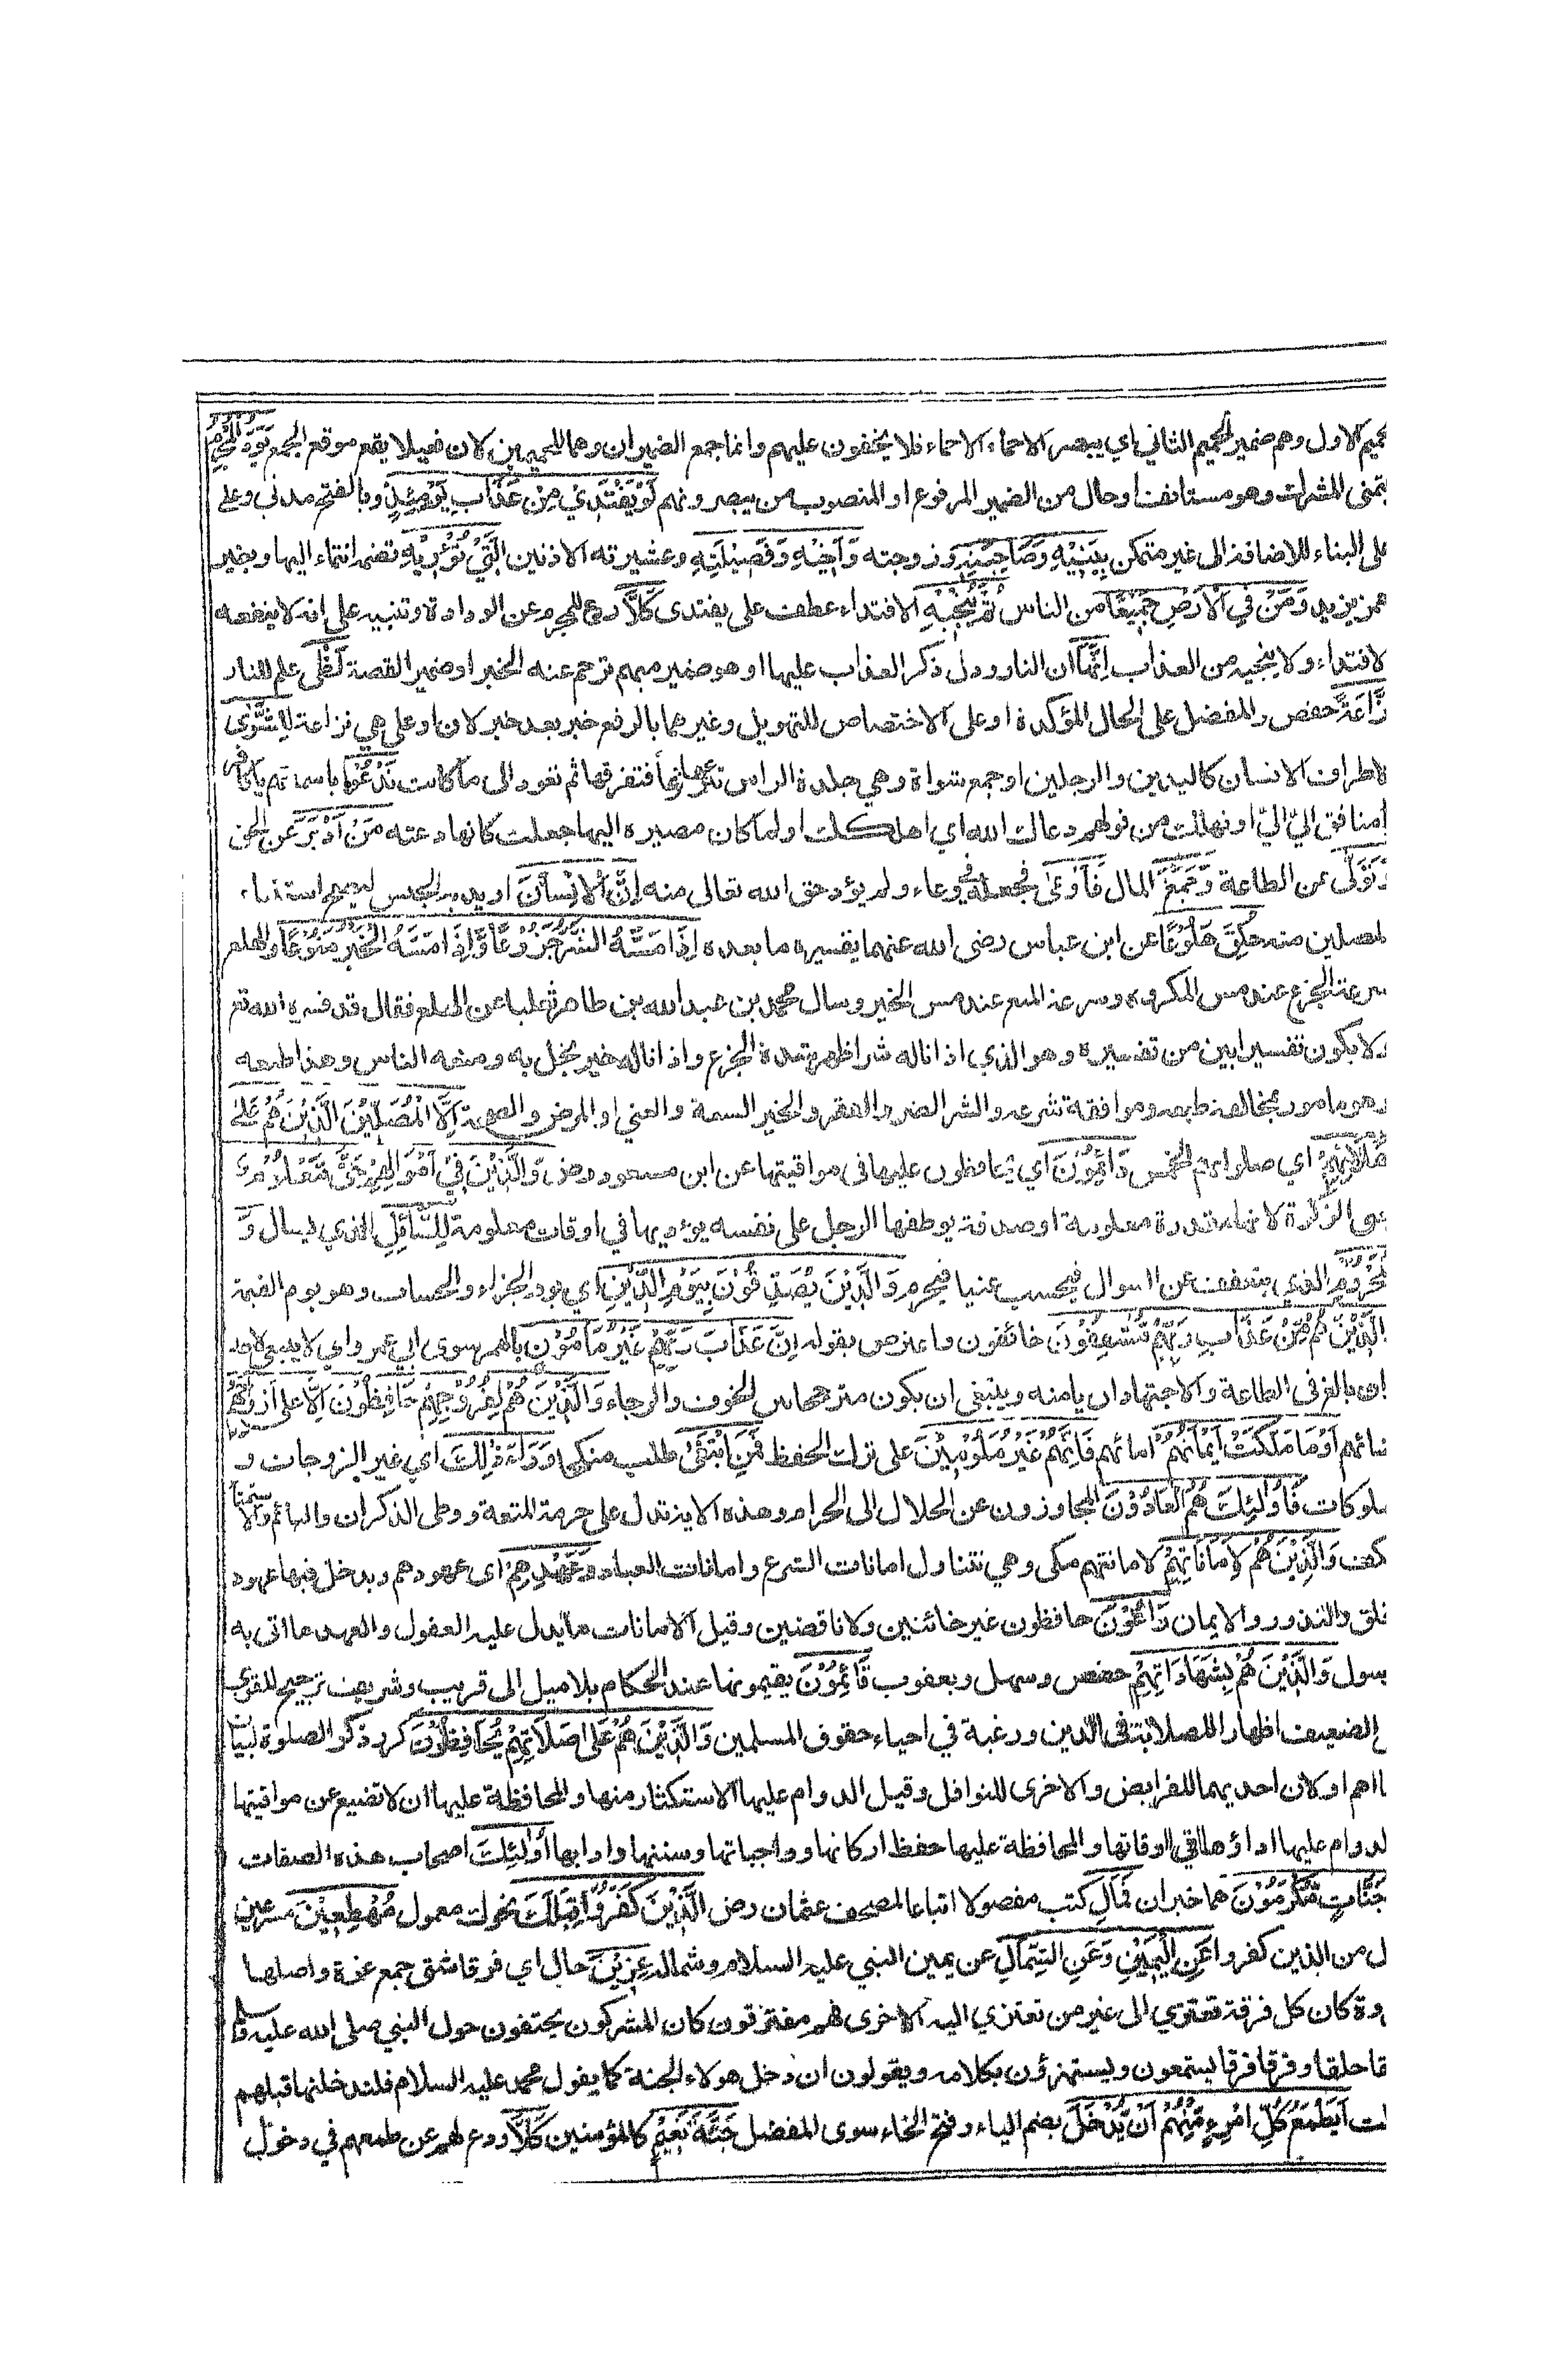 حميم الاول وهم ضمير الحميم الثاني اي يبصر الاحماء الاحماء فلا يخفون عليهم وانما جمع الضميران وهما للحميمين لان فعيلا يقع موقع الجمع يَوَدُّ الْمُجْرِمُ
يتمنى المشرك وهو مستانف او حال من الضمير المرفوع او المنصوب من يبصرونهم لَوْ يَفْتَدِيْ مِنْ عَذَابِ يَوْمِئِذٍ وبالفتح مدنى وعلى
على البناء للاضافة الى غير متمكن بِبَنِيْهِ وَصَاحِبَتِهِ وزوجته وَاَخِيْهِ وَفَصِيْلَتِهِ وعشيرته الادنين الَّتِيْ تُؤْوِيْهِ تضمه انتماء اليها وبغير
همز يزيد وَمَنْ فِي الْاَرْضِ جَمِيْعًا من الناس ثُمَّ يُنْجِيْهِ الافتداء عطف على يفتدى كَلَّا ردع للمجرم عن الودادة وتنبيه على انه لا ينفعه
لافتداء ولا ينجيه من العذاب اِنَّهَا ان النار ودل ذكر العذاب عليها او هو ضمير مبهم ترجم عنه الخبر او ضمير القصة لَظٰى علم للنار
نَزَّاعَةً حفص والمفضل على الحال المؤكدة او على الاختصاص للتهويل وغيرهما بالرفع خبر بعد خبر لان او على هي نزاعة لِلشَّوٰى
لاطراف الانسان كاليدين والرجلين او جمع شواة وهي جلدة الراس تنزعها نزعا فتفرقها ثم تعود الى ما كانت تَدْعُوْا باسمائهم يا كافر
يا منافق اليّ اليّ او تهلك من قولهم دعاك الله اي اهلكك او لما كان مصيره اليها جعلت كانها دعته مَنْ اَدْبَرَ عن الحق
وَتَوَلّٰى عن الطاعة وَجَمَعَ المال فَاَوْعٰى فجعله في وعاء ولم يؤد حق الله تعالى منه اِنَّ الْاِنْسَانَ اريد به الجنس ليصح استثناء
المصلين منه خُلِقَ هَلُوْعًا عن ابن عباس رضى الله عنهما تفسيره ما بعده اِذَا مَسَّهُ الشَّرُّ جَزُوْعًا وَّاِذَا مَسَّهُ الْخَيْرُ مَنُوْعًا والهلع
سرعة الجزع عند مس المكروه وسرعة المنع عند مس الخير وسال محمد بن عبد الله بن طاهر ثعلبا عن الهلع فقال قد فسره الله تع
ولا يكون تفسير ابين من تفسيره وهو الذي اذا ناله شر اظهر شدة الجزع واذا ناله خير بخل به ومنعه الناس وهذا طبعه
وهو مامور بمخالفة طبعه وموافقة شرعه والشر الضر والفقر والخير السعة والغني او المرض والصحة اِلَّا الْمُصَلِّيْنَ الَّذِيْنَ هُمْ عَلٰى
صَلَاتِهِمْ اي صلواتهم الخمس دَائِمُوْنَ اي يحافظون عليها في مواقيتها عن ابن مسعود رض وَالَّذِيْنَ فِيْ اَمْوَالِهِمْ حَقٌّ مَّعْلُوْمٌ
يعنى الزكوة لانها مقدرة معلومة او صدقة يوظفها الرجل على نفسه يؤديها في اوقات معلومة لِلسَّائِلِ الذي يسال وَ
الْمَحْرُوْمِ الذي يتعفف عن السوال فيحسب غنيا فيحرم وَالَّذِيْنَ يُصَدِّقُوْنَ بِيَوْمِ الدِّيْنِ اي يوم الجزاء والحساب وهو يوم القيمة
وَالَّذِيْنَ هُمْ مِّنْ عَذَابِ رَبِّهِمْ مُّشْفِقُوْنَ خائفون واعترض بقوله اِنَّ عَذَابَ رَبِّهِمْ غَيْرُ مَاْمُوْنٍ بالهمز سوى ابى عمرو اي لا ينبغى لاحد
وان بالغ فى الطاعة والاجتهاد ان يامنه وينبغى ان يكون مترجحا بين الخوف والرجاء وَالَّذِيْنَ هُمْ لِفُرُوْجِهِمْ حَافِظُوْنَ اِلَّا عَلٰى اَزْوَاجِهِمْ
نسائهم اَوْ مَا مَلَكَتْ اَيْمَانُهُمْ امائهم فَاِنَّهُمْ غَيْرُ مَلُوْمِيْنَ على ترك الحفظ فَمَنِ ابْتَغٰى طلب منكحا وَرَاءَ ذٰلِكَ اي غير الزوجات و
ملوكات فَاُولٰئِكَ هُمُ الْعَادُوْنَ المتجاوزون عن الحلال الى الحرام وهذه الاية تدل على حرمة المتعة ووطى الذكران والبهائم والاستمنا
بالكف وَالَّذِيْنَ هُمْ لِاَمَانَاتِهِمْ لامانتهم مكى وهي تتناول امانات الشرع وامانات العباد وَعَهْدِهِمْ اى عهودهم ويدخل فيها عهود
خلق والنذور والايمان رَاعُوْنَ حافظون غير خائنين ولا ناقضين وقيل الامانات ما يدل عليه العقول والعهد ما اتى به
رسول وَالَّذِيْنَ هُمْ بِشَهَادَاتِهِمْ حفص وسهل ويعقوب قَائِمُوْنَ يقيمونها عند الحكام بلا ميل الى قريب وشريف وترجيح للقوي
على الضعيف اظهارا للصلابة فى الدين ورغبة في احياء حقوق المسلمين وَالَّذِيْنَ هُمْ عَلٰى صَلَاتِهِمْ يُحَافِظُوْنَ كرر ذكر الصلوة لبيان
انها اهم او لان احديهما للفرايض والاخرى للنوافل وقيل الدوام عليها الاستكثار منها والمحافظة عليها ان لا تضيع عن مواقيتها
لدوام عليها اداؤها في اوقاتها والمحافظة عليها حفظ اركانها وواجباتها وسننها وادابها اُولٰئِكَ اصحاب هذه الصفات
جَنَّاتٍ مُّكْرَمُوْنَ هما خبران فَمَالِ كتب مفصولا اتباعا لمصحف عثمان رض الَّذِيْنَ كَفَرُوْا قِبَلَكَ نحوك معمول مُهْطِعِيْنَ مسرعين
ل من الذين كفروا عَنِ الْيَمِيْنِ وَعَنِ الشِّمَالِ عن يمين النبي عليه السلام وشماله عِزِيْنَ حال اي فرقا شتى جمع عزة واصلها
عزوة كان كل فرقة تعتزي الى غير من تعتزي اليه الاخرى فهم مفترقون كان المشركون يحتفون حول النبي صلى الله عليه وسلم
قا حلقا وفرقا فرقا يستمعون ويستهزؤن بكلامه ويقولون ان دخل هولاء الجنة كما يقول محمد عليه السلام فلندخلنها قبلهم
لت اَيَطْمَعُ كُلُّ امْرِءٍ مِّنْهُمْ اَنْ يُّدْخَلَ بضم الياء وفتح الخاء سوى المفضل جَنَّةَ نَعِيْمٍ كالمؤمنين كَلَّا ردع لهم عن طمعهم في دخول